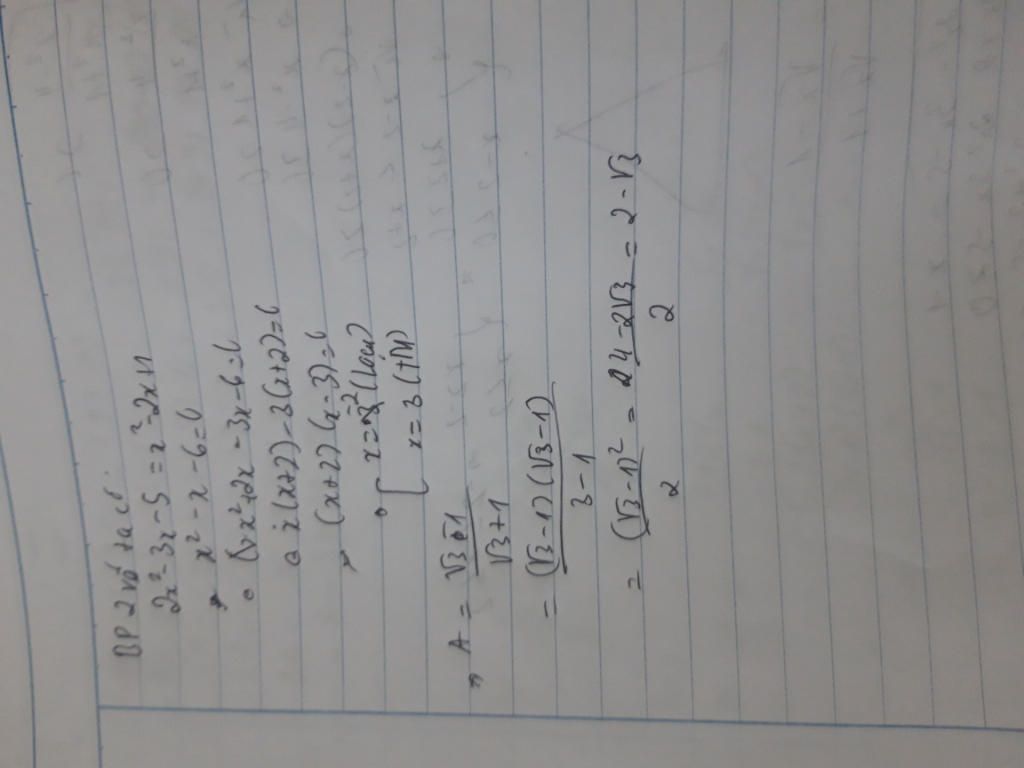 BP 2 vế ta có:
2x² - 3x - 5 = x² - 2x + 1
x² - x - 6 = 0
x² + 2x - 3x - 6 = 0
x(x+2) - 3(x+2) = 0
(x+2)(x-3) = 0
x = -2 (loại)
x = 3 (TM)
=> A = \frac{√3 - 1}{√3 + 1}
= \frac{(√3 - 1)(√3 - 1)}{3 - 1}
= \frac{(√3 - 1)²}{2} = \frac{4 - 2√3}{2} = 2 - √3